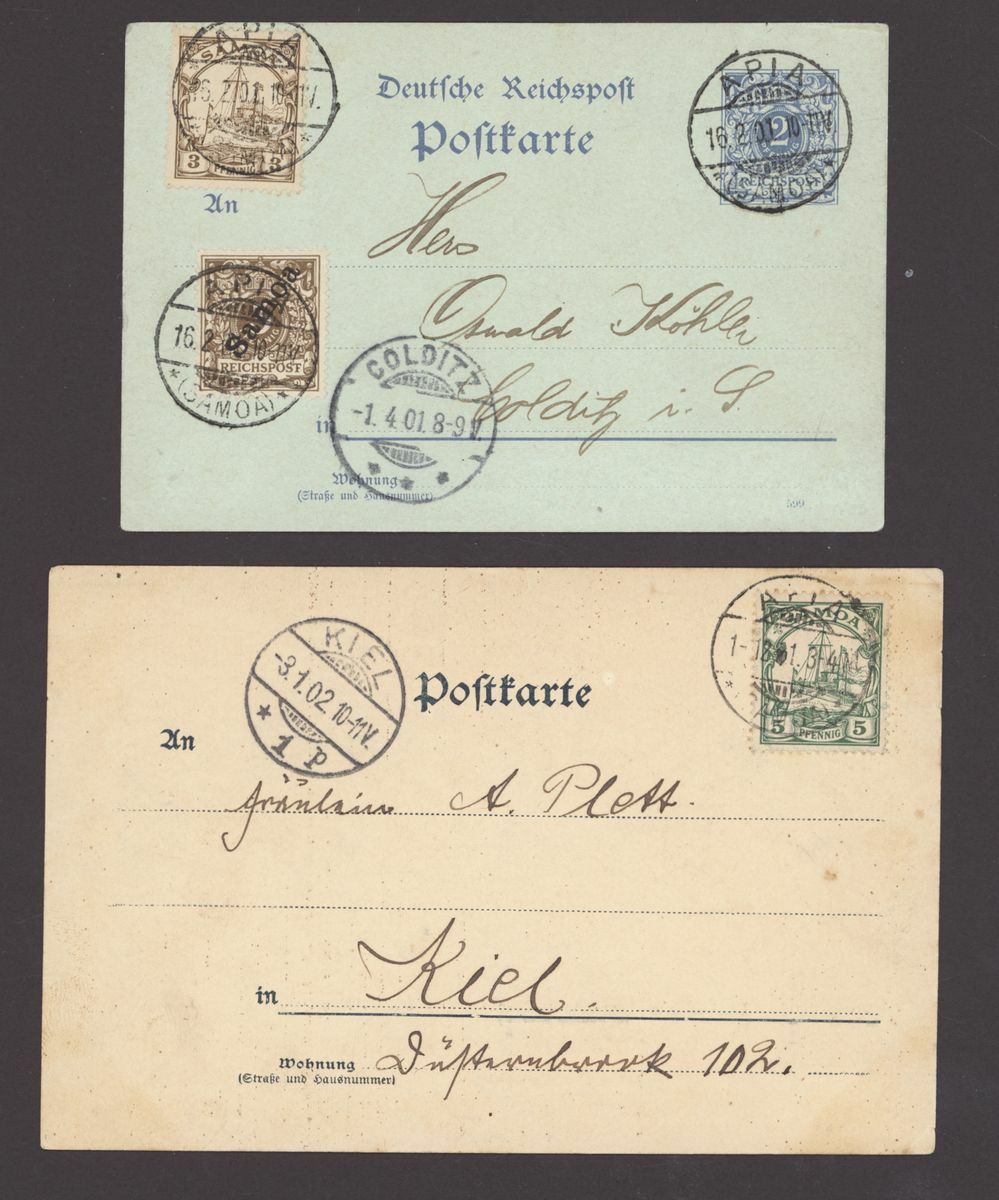 SAMOA
3 PFENNIG 3
APIA
16.2.01.10-11V.
Deutsche Reichspost
Postkarte
2
REICHSPOST
APIA
16.2.01.10-11V.
*(SAMOA)*
An
Herr
Oswald Köhler
Colditz i. S.
in
Samoa
REICHSPOST
APIA
16.2. 10-11V.
*(SAMOA)*
COLDITZ
-1.4.01.8-9V.
* * *
Wohnung
(Straße und Hausnummer)
599
KIEL
-3.1.02.10-11V.
* 1 P
Postkarte
SAMOA
5 PFENNIG 5
APIA
An
Fräulein A. Plett.
in Kiel.
Wohnung Düsternbrook 102.
(Straße und Hausnummer)